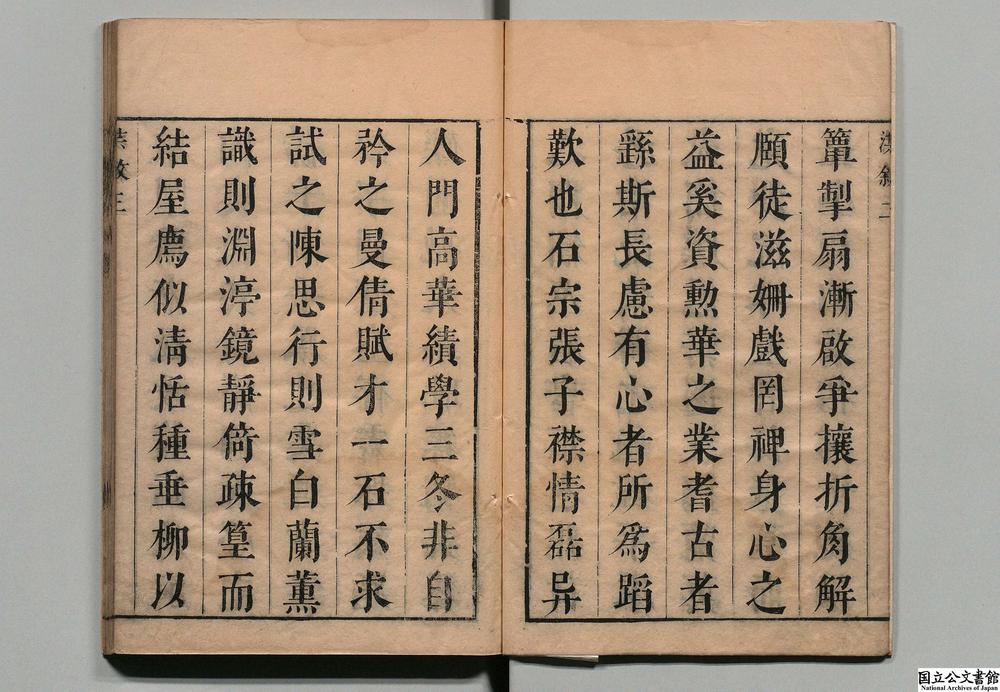 簟掣扇漸啟爭攘折角解
頤徒滋姍戲罔裨身心之
益奚資勲華之業耆古者
繇斯長慮有心者所爲蹈
歎也石宗張子襟情磊异
人門高華績學三冬非自
矜之曼倩賦才一石不求
試之陳思行則雪白蘭薰
識則淵渟鏡靜倚疎篁而
結屋廌似清恬種垂柳以
国立公文書館
National Archives of Japan